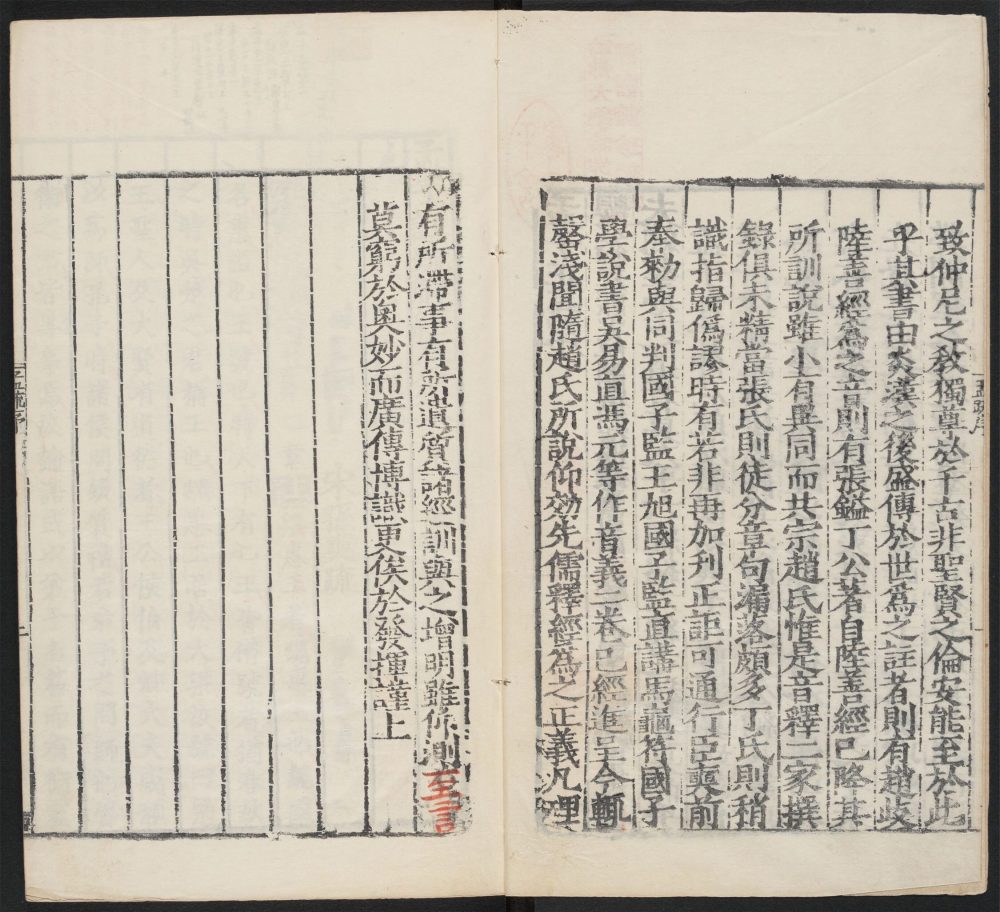 致仲尼之教獨尊於千古非聖賢之倫安能至於此
乎其書由炎漢之後盛傳於世為之註者則有趙岐
陸善經為之音則有張鎰丁公著自陸善經已降其
所訓說雖小有異同而共宗趙氏惟是音釋二家撰
錄俱未精當張氏則徒分章句漏落頗多丁氏則稍
識指歸偽謬時有若非再加刋正詎可通行臣奭前
奉勑與同判國子監王旭國子監直講馬龜符國子
學說書吳易直馮元等作音義二卷已經進呈今輒
罄淺聞隨趙氏所說仰効先儒釋經為之正義凡理
有所滯事有所遺質諸經訓與之增明雖仰測至言
莫窮於奧妙而廣傳博識更俟於發揮謹上